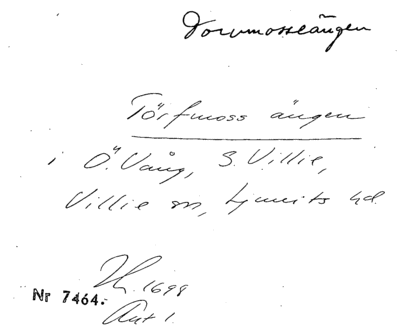 Dorvmosseängen
Törfmoss ängen
i Ö. Vång, S. Villie,
Villie sn, Ljunits hd
Nr 7464.
Lh. 1699
Akt 1